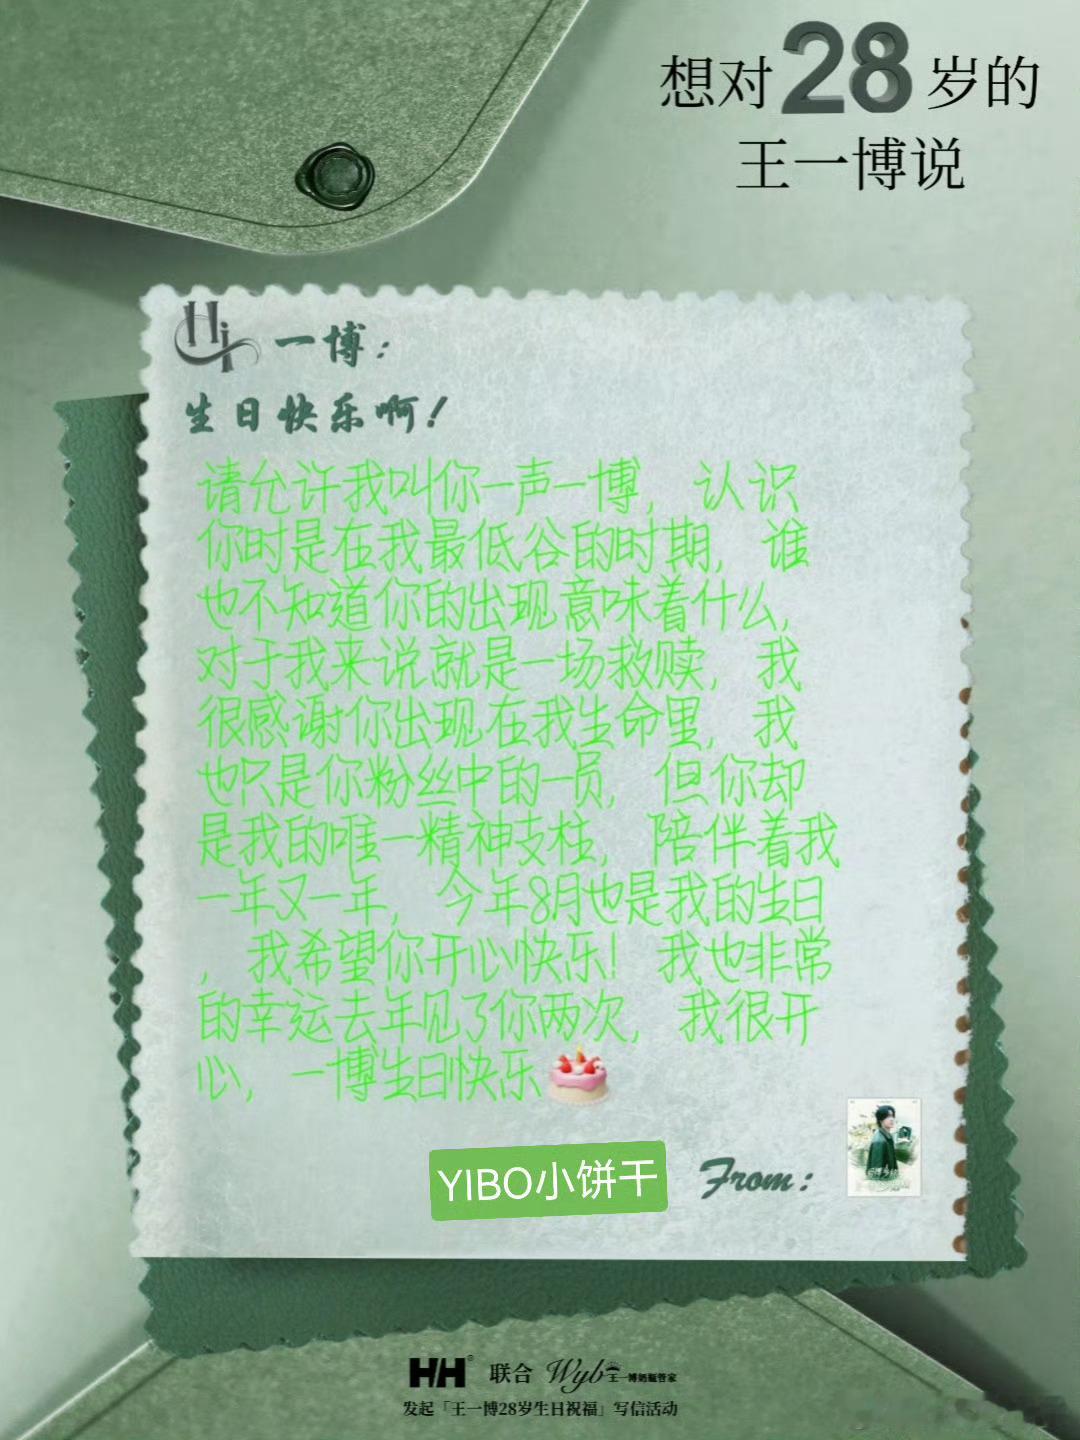 想对28岁的
王一博说
Hi 一博：
生日快乐啊！
请允许我叫你一声一博，认识
你时是在我最低谷的时期，谁
也不知道你的出现意味着什么，
对于我来说就是一场救赎，我
很感谢你出现在我生命里，我
也只是你粉丝中的一员，但你却
是我的唯一精神支柱，陪伴着我
一年又一年，今年8月也是我的生日
，我希望你开心快乐！我也非常
的幸运去年见了你两次，我很开
心，一博生日快乐🎂
YIBO小饼干
From：
HH® 联合 Wyb王一博奶瓶管家
发起「王一博28岁生日祝福」写信活动